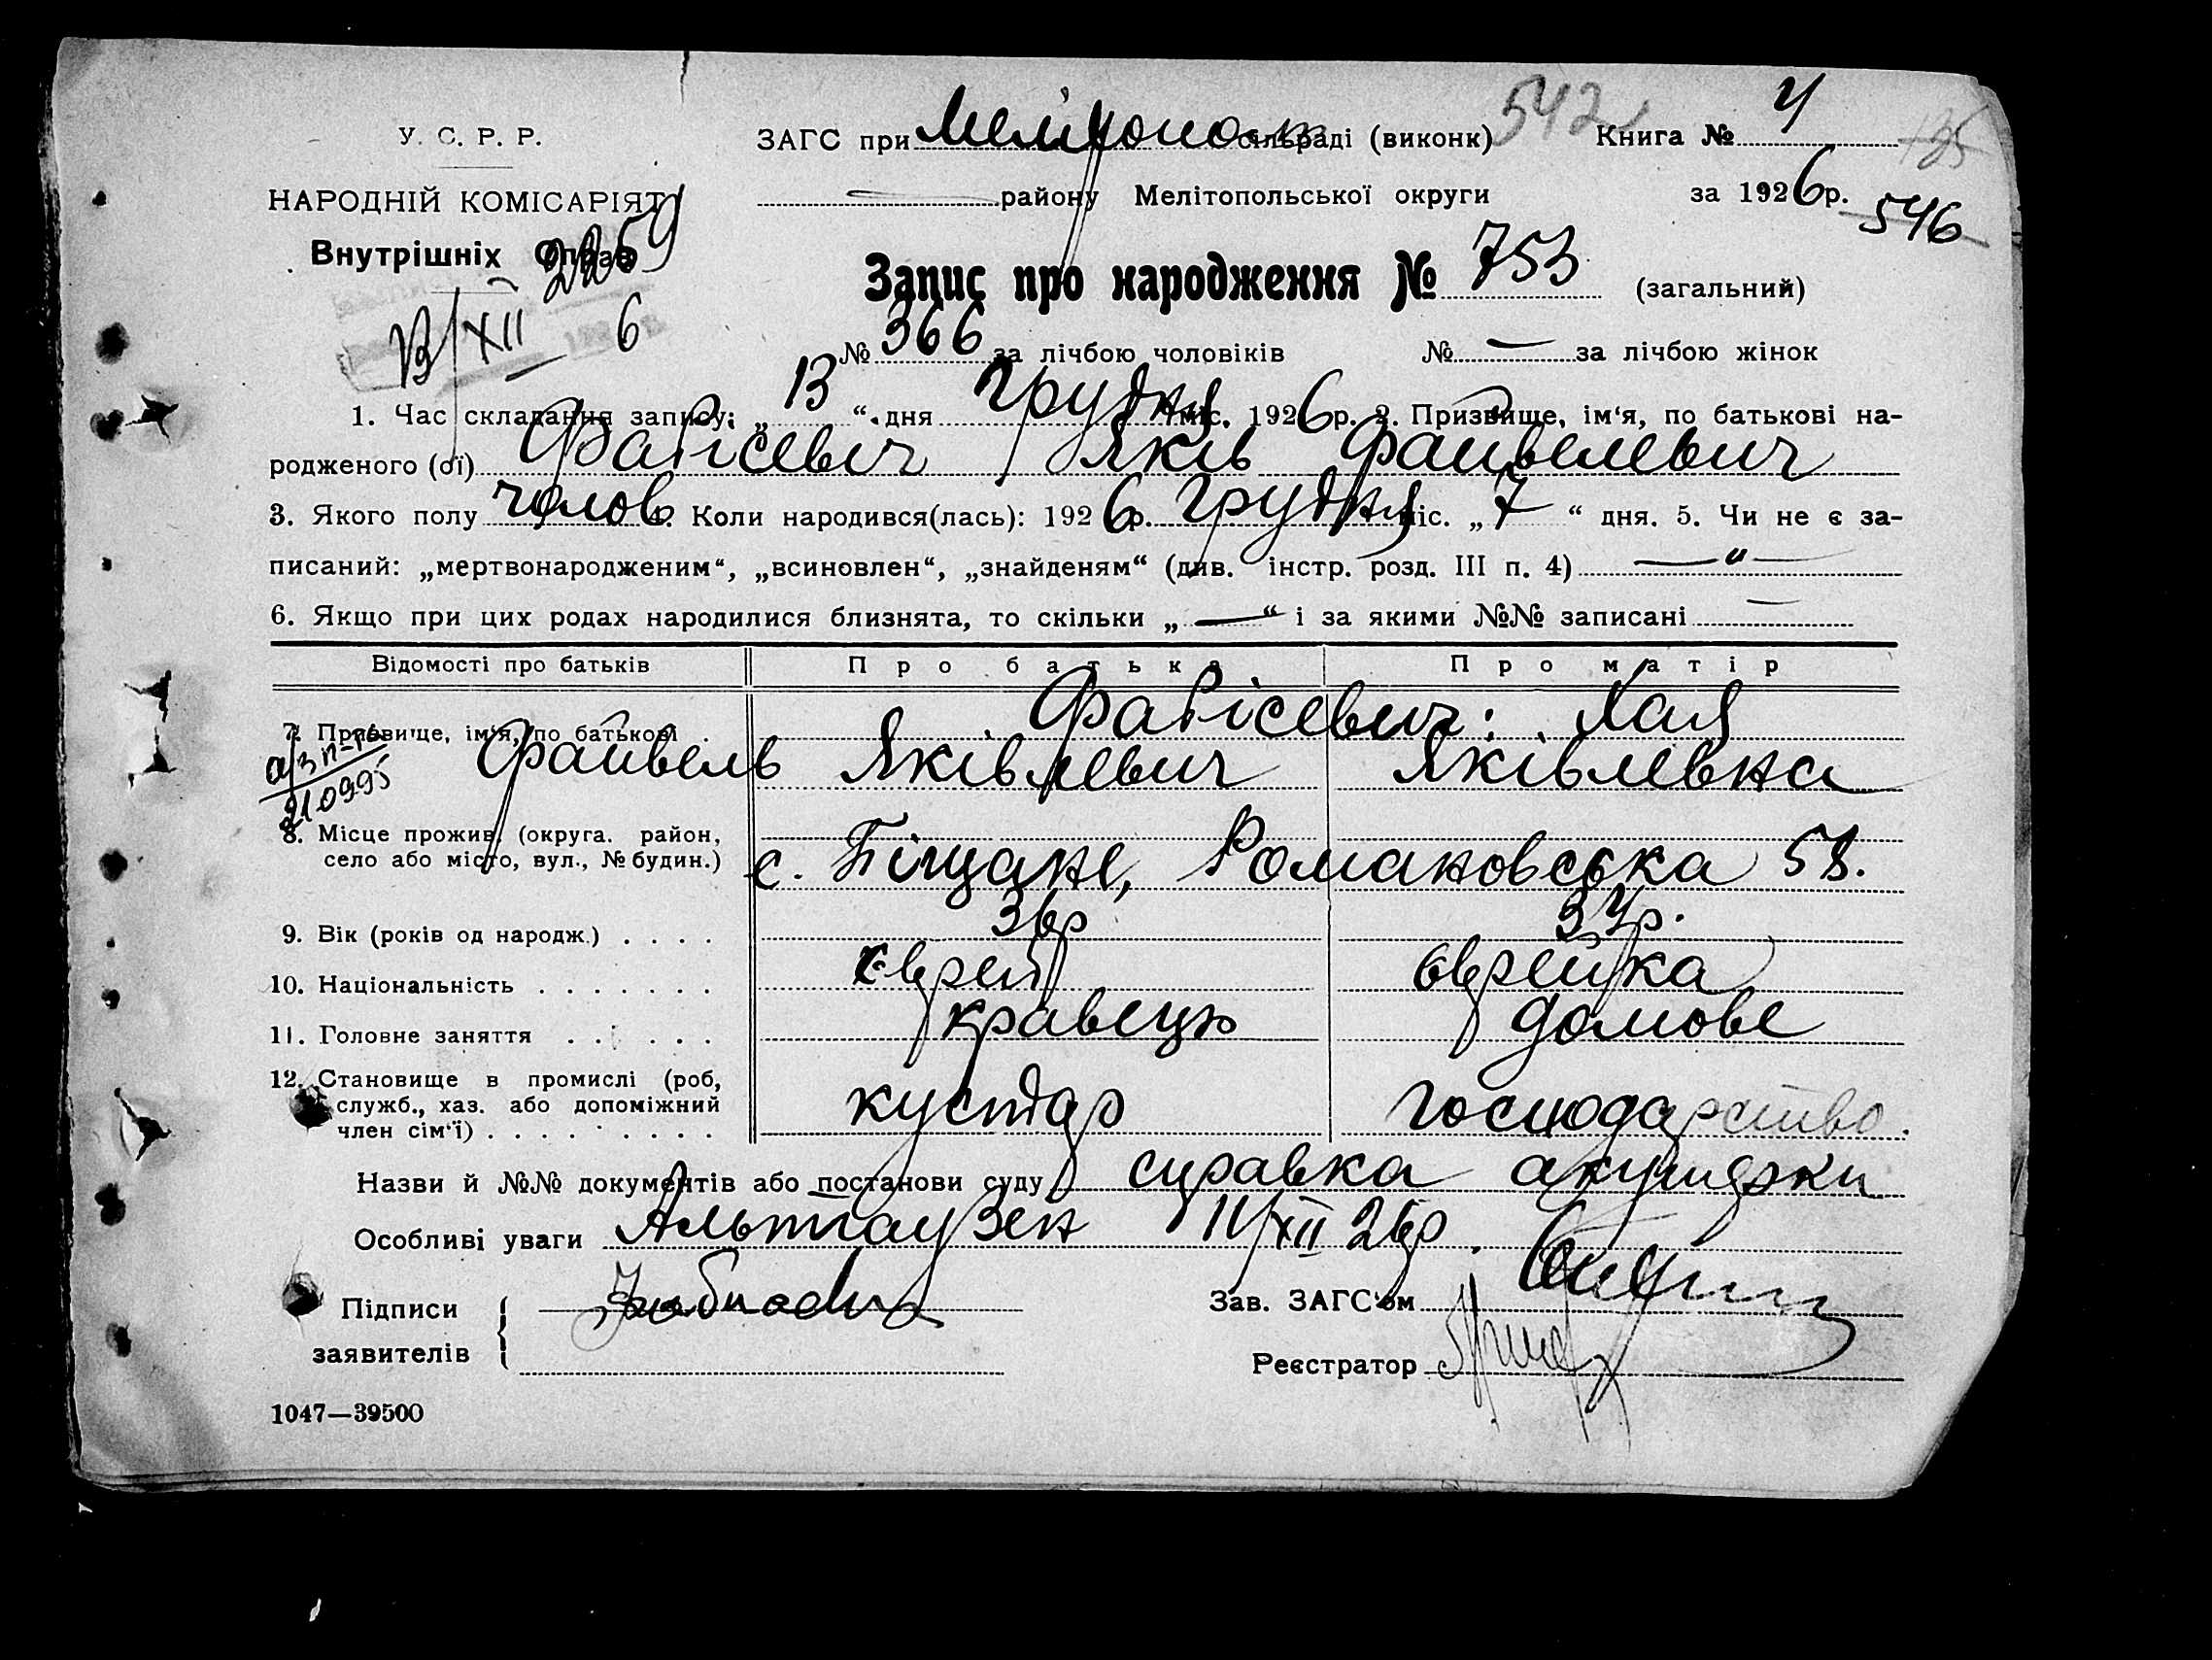 У. С. Р. Р.
НАРОДНІЙ КОМІСАРІЯТ
Внутрішніх Справ
2259
13/XII 6
ЗАГС при Мелітополь сільраді (виконк) 542 Книга № 4
135
району Мелітопольської округи за 1926р.
546
Запис про народження № 753 (загальний)
№ 366 за лічбою чоловіків № — за лічбою жінок
1. Час складання запису: „13“ дня Грудня міс. 1926р. 2. Призвище, ім‘я, по батькові на-
родженого (ої) Фабісевич Яків Файвелевич
3. Якого полу чолов 4. Коли народився(лась): 1926р. Грудня міс. „7“ дня. 5. Чи не є за-
писаний: „мертвонародженим“, „всиновлен“, „знайденям“ (див. інстр. розд. III п. 4) —„—
6. Якщо при цих родах народилися близнята, то скільки „—“ і за якими №№ записані —
Відомості про батьків Про батька Про матір
7. Призвище, ім‘я, по батькові Фабісевич: Хая
Файвель Яківлевич Яківлевна
210995
8. Місце прожив. (округа. район,
село або місто, вул., № будин.) с. Піщане, Романовська 58.
9. Вік (років од народж.) . . . . 36р 34р.
10. Національність . . . . . . . єврей єврейка
11. Головне заняття . . . . . . кравець домове
12. Становище в промислі (роб,
служб., хаз. або допоміжний
член сім‘ї) . . . . . . . . . кустар господарство.
Назви й №№ документів або постанови суду справка акушерки
Особливі уваги Альтгаузен 11/XII 26р.
Підписи
заявителів
Зав. ЗАГС‘ом
Реєстратор
1047—39500